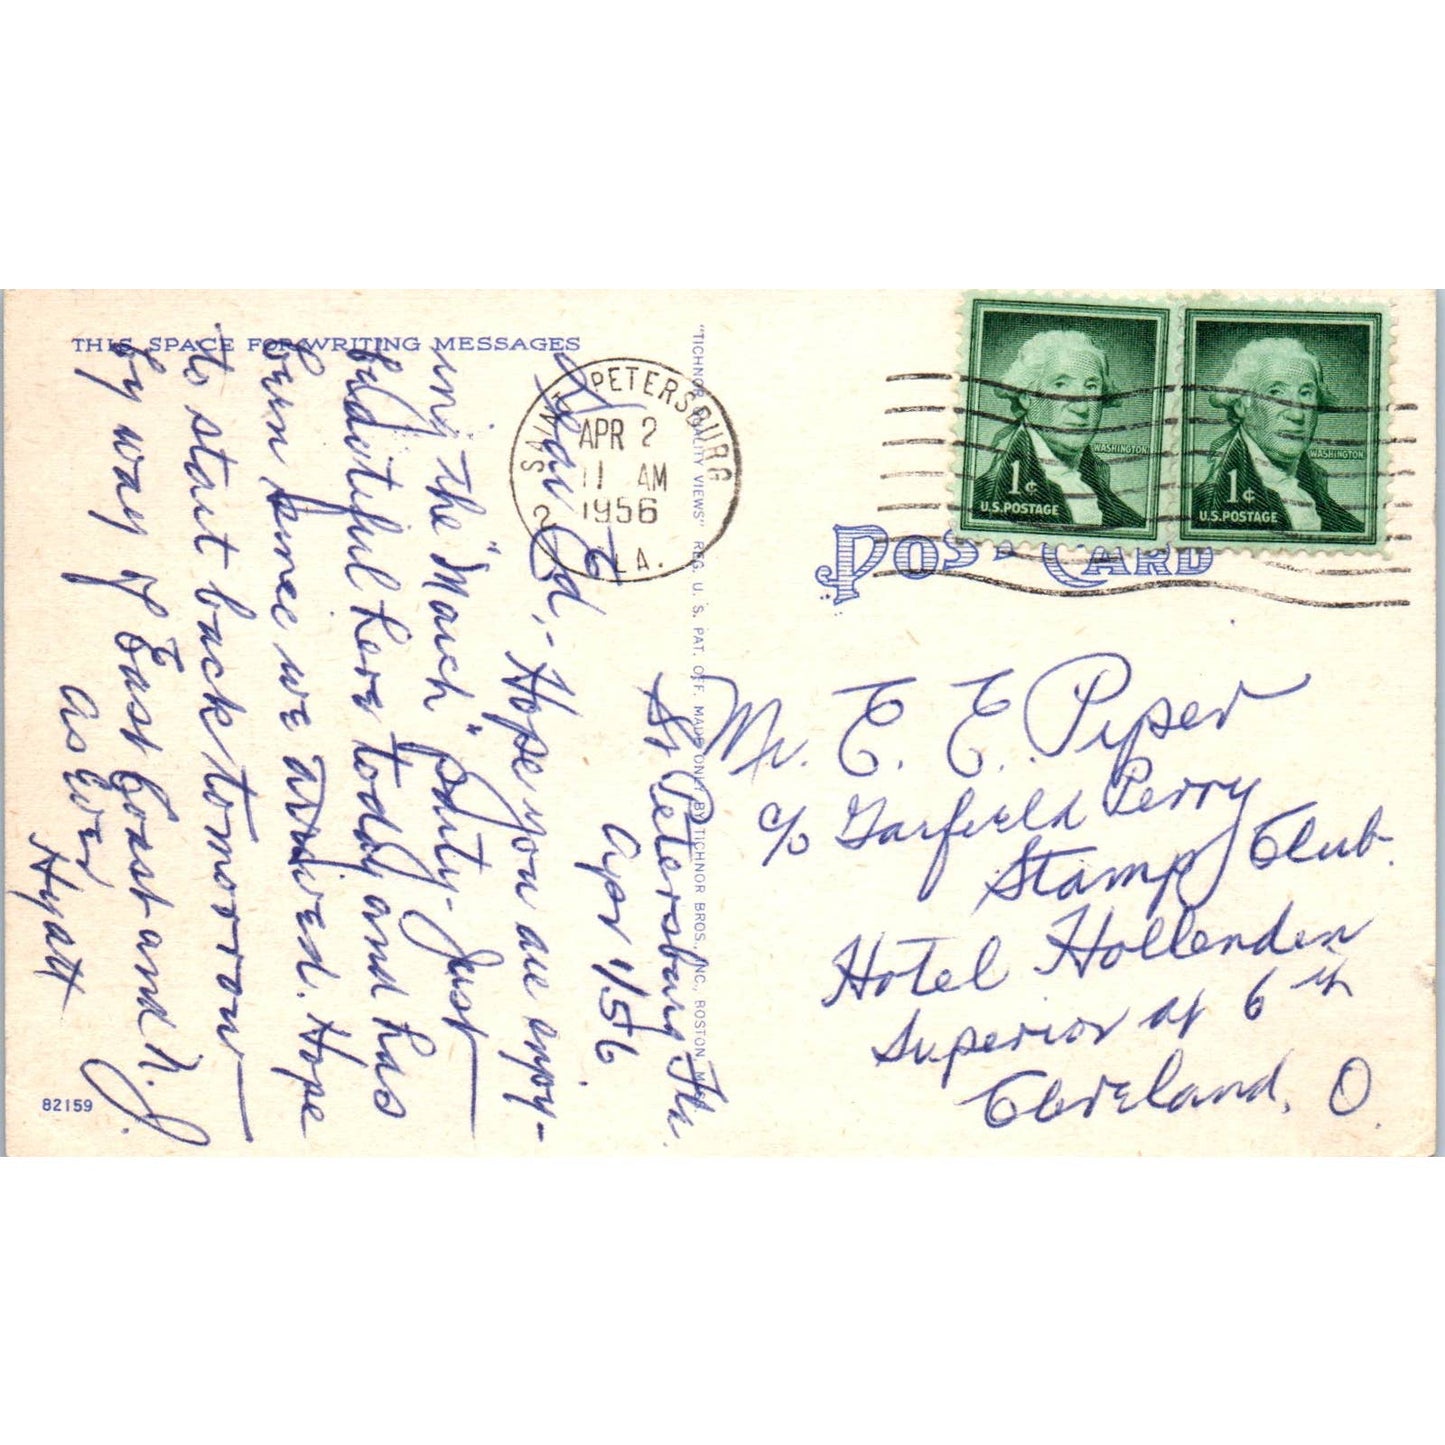 THIS SPACE FOR WRITING MESSAGES
St Petersburg Fla.
Apr 1/56
Dear Ed,-
Hope you are enjoy-
ing the "March" party. Just
beautiful here today and has
been since we arrived. Hope
to start back tomorrow
by way of East Coast and N.J.
As Ever
Hyatt
82159
"TICHNOR QUALITY VIEWS" REG. U. S. PAT. OFF. MADE ONLY BY TICHNOR BROS., INC., BOSTON,
SAINT PETERSBURG
APR 2
11 AM
1956
2 LA.
1¢
WASHINGTON
U.S. POSTAGE
1¢
WASHINGTON
U.S. POSTAGE
POST CARD
Mr. E. E. Piper
c/o Garfield Perry
Stamp Club.
Hotel Hollenden
Superior at 6th
Cleveland, O.